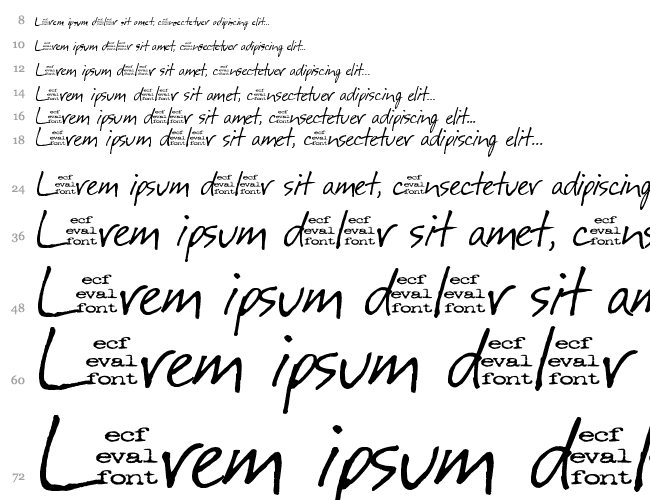 8 Lecf eval fontrem ipsum decf eval fontlecf eval fontr sit amet, cecf eval fontnsectetuer adipiscing elit...
10 Lecf eval fontrem ipsum decf eval fontlecf eval fontr sit amet, cecf eval fontnsectetuer adipiscing elit...
12 Lecf eval fontrem ipsum decf eval fontlecf eval fontr sit amet, cecf eval fontnsectetuer adipiscing elit...
14 Lecf eval fontrem ipsum decf eval fontlecf eval fontr sit amet, cecf eval fontnsectetuer adipiscing elit...
16 Lecf eval fontrem ipsum decf eval fontlecf eval fontr sit amet, cecf eval fontnsectetuer adipiscing elit...
18 Lecf eval fontrem ipsum decf eval fontlecf eval fontr sit amet, cecf eval fontnsectetuer adipiscing elit...
24 Lecf eval fontrem ipsum decf eval fontlecf eval fontr sit amet, cecf eval fontnsectetuer adipiscing
36 Lecf eval fontrem ipsum decf eval fontlecf eval fontr sit amet, cecf eval fontns
48 Lecf eval fontrem ipsum decf eval fontlecf eval fontr sit am
60 Lecf eval fontrem ipsum decf eval fontlecf eval fontr
72 Lecf eval fontrem ipsum decf eval fontl